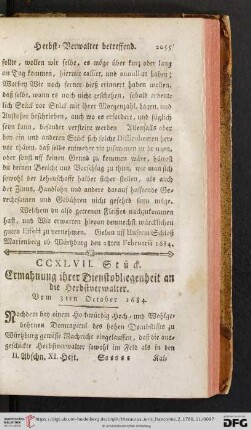 Herbst-Verwalter betreffend. 2055
sollte, wollen wir selbe, es möge über kurz oder lang
an Tag kommen, hiermit cassirt, und annullirt haben;
Worbey Wir noch ferner dieß erinnert haben wollen,
daß selbe, wann es noch nicht geschehen, sobald
Stück vor Stück mit ihrer Morgenzahl, Lagen, und
Anstoßen beschrieben, auch wo es erfordert, und füglich
seyn kann, besonder versteint werden Allenfalls aber
den ein und andern Orten sich solche Difficultaeten
daß selbe entweder nit zusammen
oder sonst auf keinen Grund zu kommen wäre, hättest
du deinen Bericht und Vorschlag zu thun, wie man sich
sowohl der Lehenschafft halber sicher stellen, als auch
der Zinns, Handlohn und andere darauf hafftende Ge-
rechtsamen und Gebühren nicht gesichert seyn möge.
Welchem du also getreuen Fleißes nachzukommen
hast, und Wir erwarten hievon demnächst
guten Effect zu vernehmen. Geben auf Unserm Schloß
Marienberg ob Würtzburg den Februarii 1684.
CCXLVII. Stück.
Ermahnung ihrer Dienstobliegenheit an
die Herbstverwalter.
Vom 3ten October 1684
Nachdem bey einem Hochwürdig Hoch- und Wohlge-
bohrnen Domcapitul des hohen Domstifts zu
Würtzburg gewisse Nachricht eingelauffen, daß die aus-
geschickte Herbstverwalter sowohl im Feld als in den
II. Abschn. XI. Heft. Kal-